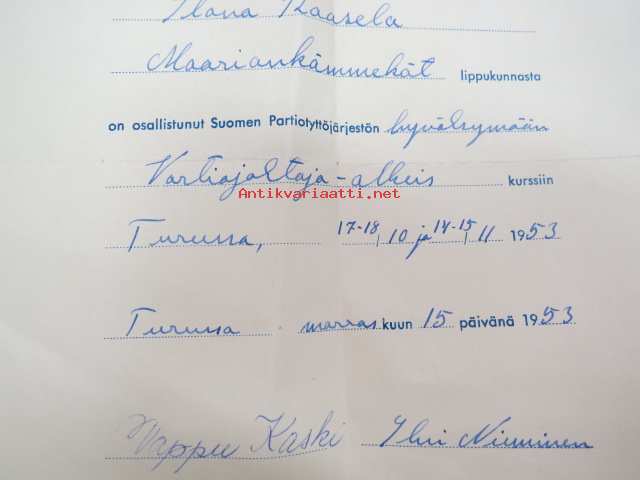 Ilona Kaasela
Maariankämmekät lippukunnasta
on osallistunut Suomen Partiotyttöjärjestön hyväksymään
Vartiojohtaja-alkeis kurssiin
Antikvariaatti.net
Turussa, 17-18/10 ja 14-15/11 1953
Turussa marraskuun 15 päivänä 1953
Vappu Kaski Ylvi Nieminen